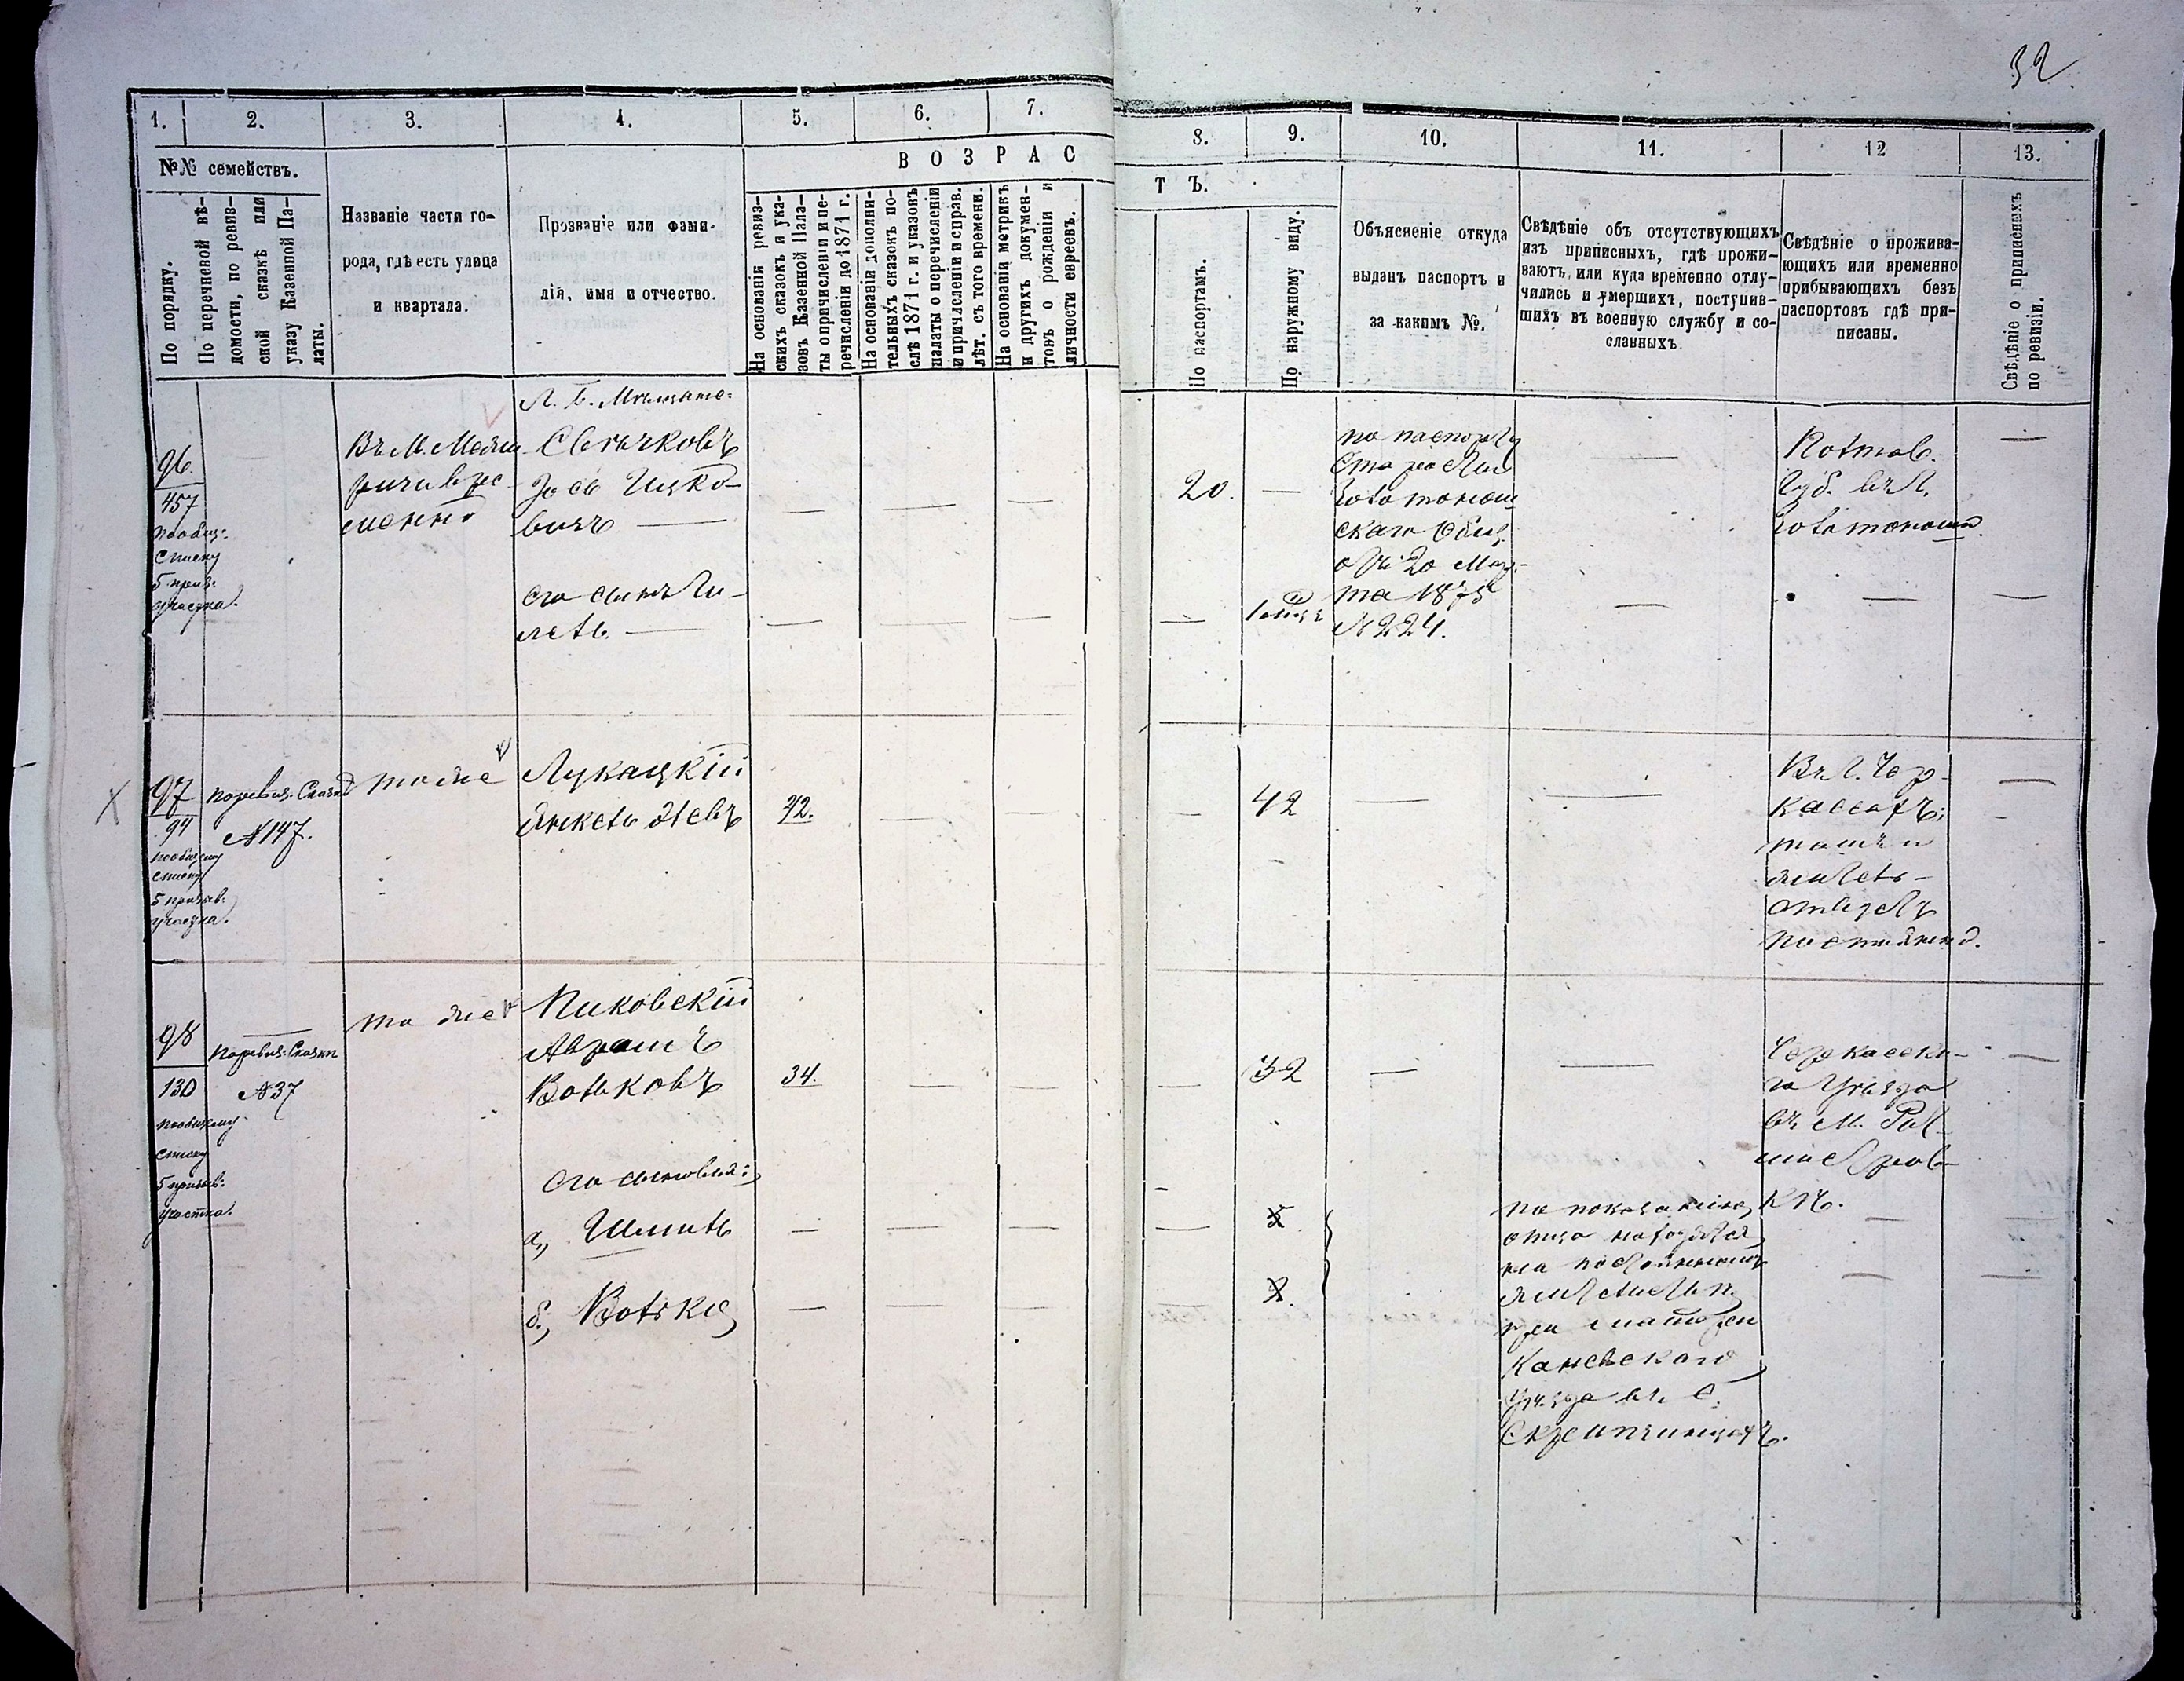 32
1.
2.
3.
4.
5.
6.
7.
8.
9.
10.
11.
12
13.
№№ семействъ.
По порядку.
По перечневой вѣ-
домости, по ревиз-
ской сказкѣ или
указу Казенной Па-
латы.
Названіе части го-
рода, гдѣ есть улица
и квартала.
Прозваніе или фами-
лія, имя и отчество.
ВОЗРАС
ТЪ.
На основаніи ревиз-
скихъ сказокъ и ука-
зовъ Казенной Пала-
ты о причисленіи и пе-
речисленіи до 1871 г.
На основаніи дополни-
тельныхъ сказокъ по-
слѣ 1871 г. и указовъ
палаты о перечисленіи
и причисленіи и справ.
лѣт. съ того времени.
На основаніи метрикъ
и другихъ докумен-
товъ о рожденіи и
личности евреевъ.
По паспортамъ.
По наружному виду.
Объясненіе откуда
выданъ паспортъ и
за какимъ №.
Свѣдѣніе объ отсутствующихъ
изъ приписныхъ, гдѣ прожи-
ваютъ, или куда временно отлу-
чились и умершихъ, поступив-
шихъ въ военную службу и со-
сланныхъ
Свѣдѣніе о прожива-
ющихъ или временно
прибывающихъ безъ
паспортовъ гдѣ при-
писаны.
Свѣдѣніе о приписныхъ
по ревизіи.
96.
457
по общ:
списку
5 приз:
участка.
Въ М. Меджи
ричи вре-
менно
Свѣчковъ
Іось Ицко-
вичъ —
его сынъ Ги-
лель. —
20.
по паспорту
Старосты
Золотонош
скаго Общ.
отъ 20 Мар-
та 1875
№ 224.
Полтав.
Губ. въ г.
Золотоноши.
97
94
по общему
списку
5 призыв:
участка.
по ревиз. Сказкѣ
№ 147.
тоже
Лукацкій
Янкель Лейбъ
42
Въ г. Чер-
кассахъ;
тамъ и
житель-
ствуетъ
постоянно.
98
130
по общему
списку
5 призыв:
участка.
по ревиз: Сказки
№ 37
тоже
Пиковскій
Аврамъ
Вольковъ
34.
32
Черкасска-
го Уѣзда
въ М. Рат-
мистров-
кѣ.
его сыновья:
а., Шмиль
б., Волько
по показанію
отца находятся
на постоянномъ
жительствѣ
при матери
Каневскаго
Уѣзда въ с.